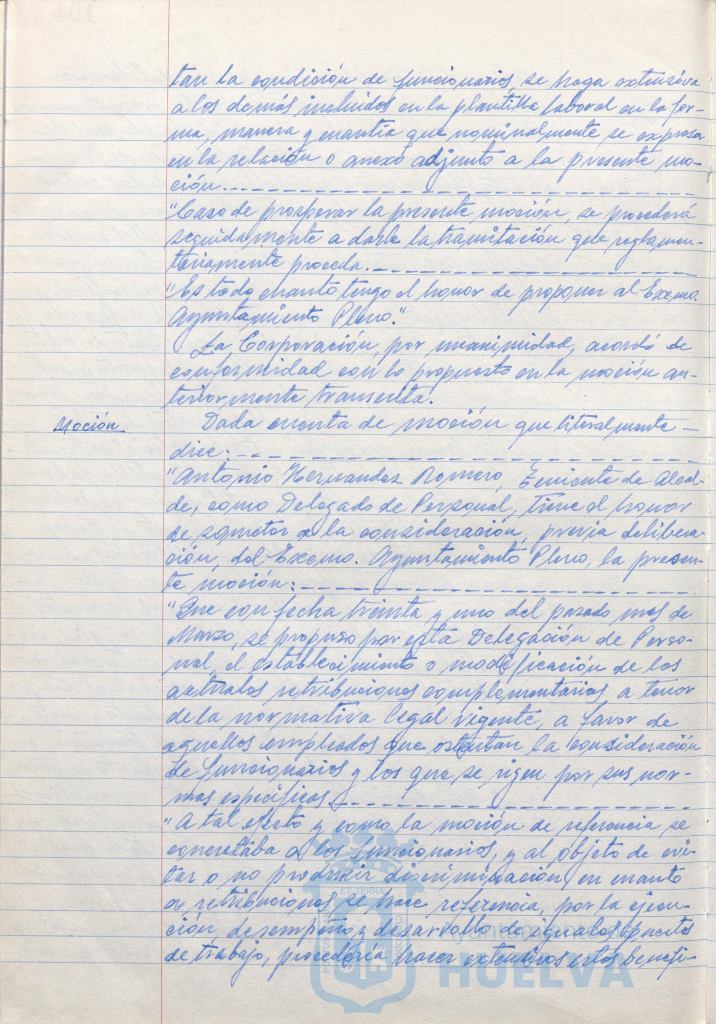 tan la condición de funcionarios, se haga extensiva
a los demás incluidos en la plantilla laboral en la for-
ma, manera y cuantía que nominalmente se expresa
en la relación o anexo adjunto a la presente mo-
ción.
"Caso de prosperar la presente moción, se procederá
seguidamente a darle la tramitación que reglamen-
tariamente proceda.
"Es todo cuanto tengo el honor de proponer al Excmo.
Ayuntamiento Pleno."
La Corporación, por unanimidad, acordó de
conformidad con lo propuesto en la moción an-
teriormente transcrita.
Moción
Dada cuenta de moción que literalmente
dice:
"Antonio Hernandez Romero, Teniente de Alcal-
de, como Delegado de Personal, tiene el honor
de someter a la consideración, previa delibera-
ción, del Excmo. Ayuntamiento Pleno, la presen-
te moción:
"Que con fecha treinta y uno del pasado mes de
Marzo, se propuso por esta Delegación de Perso-
nal, el establecimiento o modificación de los
actuales retribuciones complementarias, a tenor
de la normativa legal vigente, a favor de
aquellos empleados que ostentan la consideración
de funcionarios y los que se rigen por sus nor-
mas específicas.
"A tal efecto y como la moción de referencia se
concretaba a los funcionarios, y al objeto de evi-
tar o no producir discriminación, en cuanto
a retribuciones se hace referencia, por la ejecu-
ción, desempeño y desarrollo de iguales puestos
de trabajo, procedería hacer extensivos estos benefi-
HUELVA